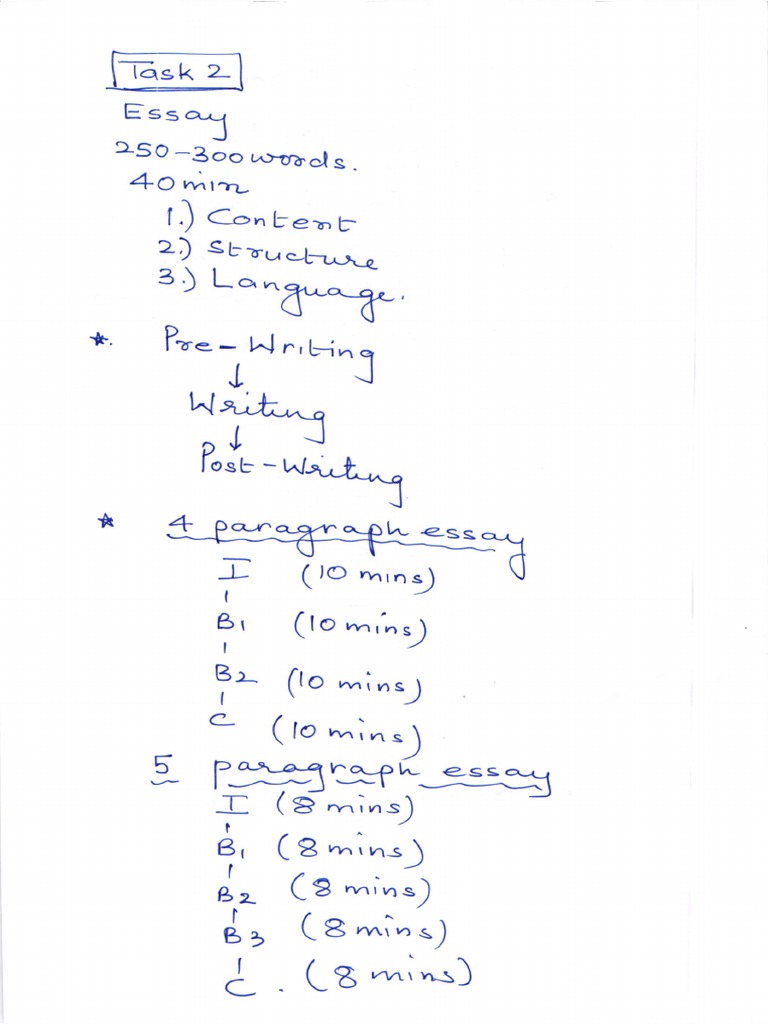 Task 2
Essay
250-300 words.
40 min
1.) Content
2.) Structure
3.) Language.
*. Pre-Writing
↓
Writing
↓
Post-Writing
* 4 paragraph essay
I (10 mins)
B1 (10 mins)
B2 (10 mins)
C (10 mins)
5 paragraph essay
I (8 mins)
B1 (8 mins)
B2 (8 mins)
B3 (8 mins)
C. (8 mins)